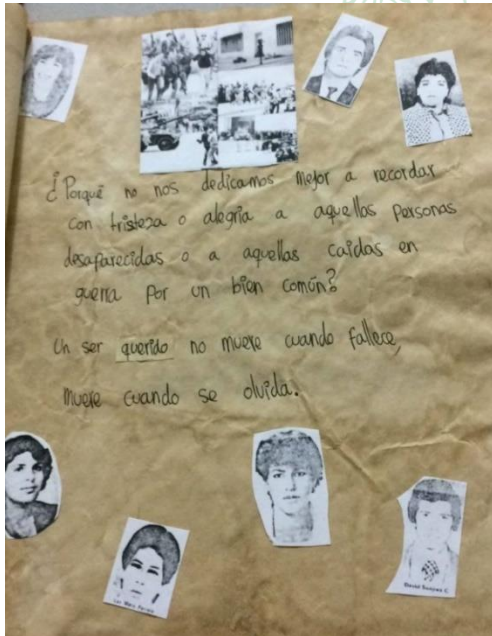 ¿Porqué no nos dedicamos mejor a recordar
con tristeza o alegría a aquellas personas
desaparecidas o a aquellas caídas en
guerra por un bien común?
Un ser querido no muere cuando fallece,
muere cuando se olvida.